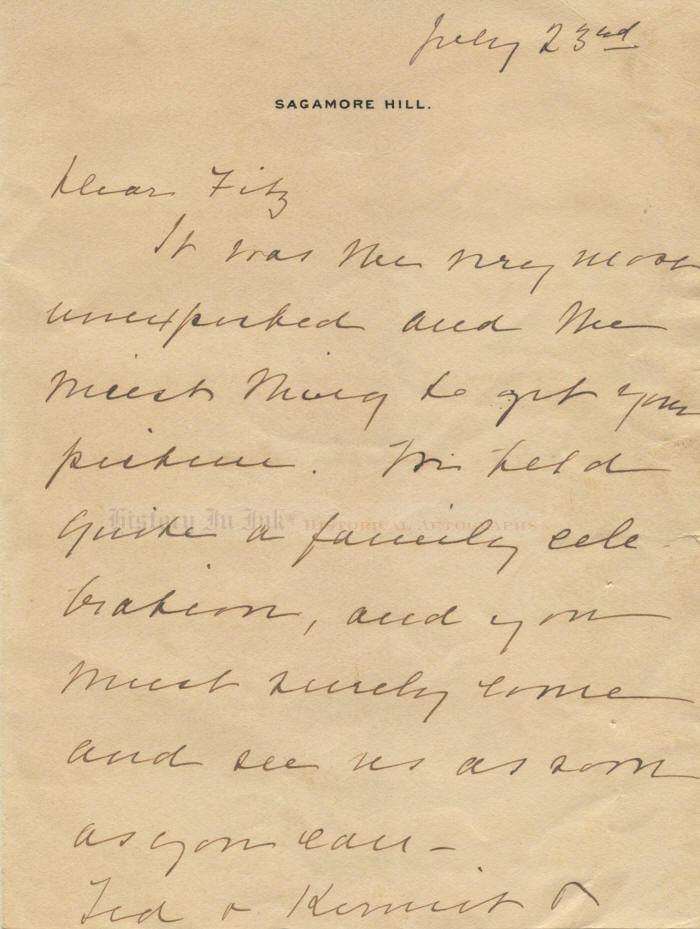 July 23rd
SAGAMORE HILL.
Dear Fitz
It was the very most
unexpected and the
nicest thing to get your
picture. We held
History In Ink® HISTORICAL AUTOGRAPHS
quite a family cele
bration, and you
must surely come
and see us as soon
as you can –
Ted & Kermit &